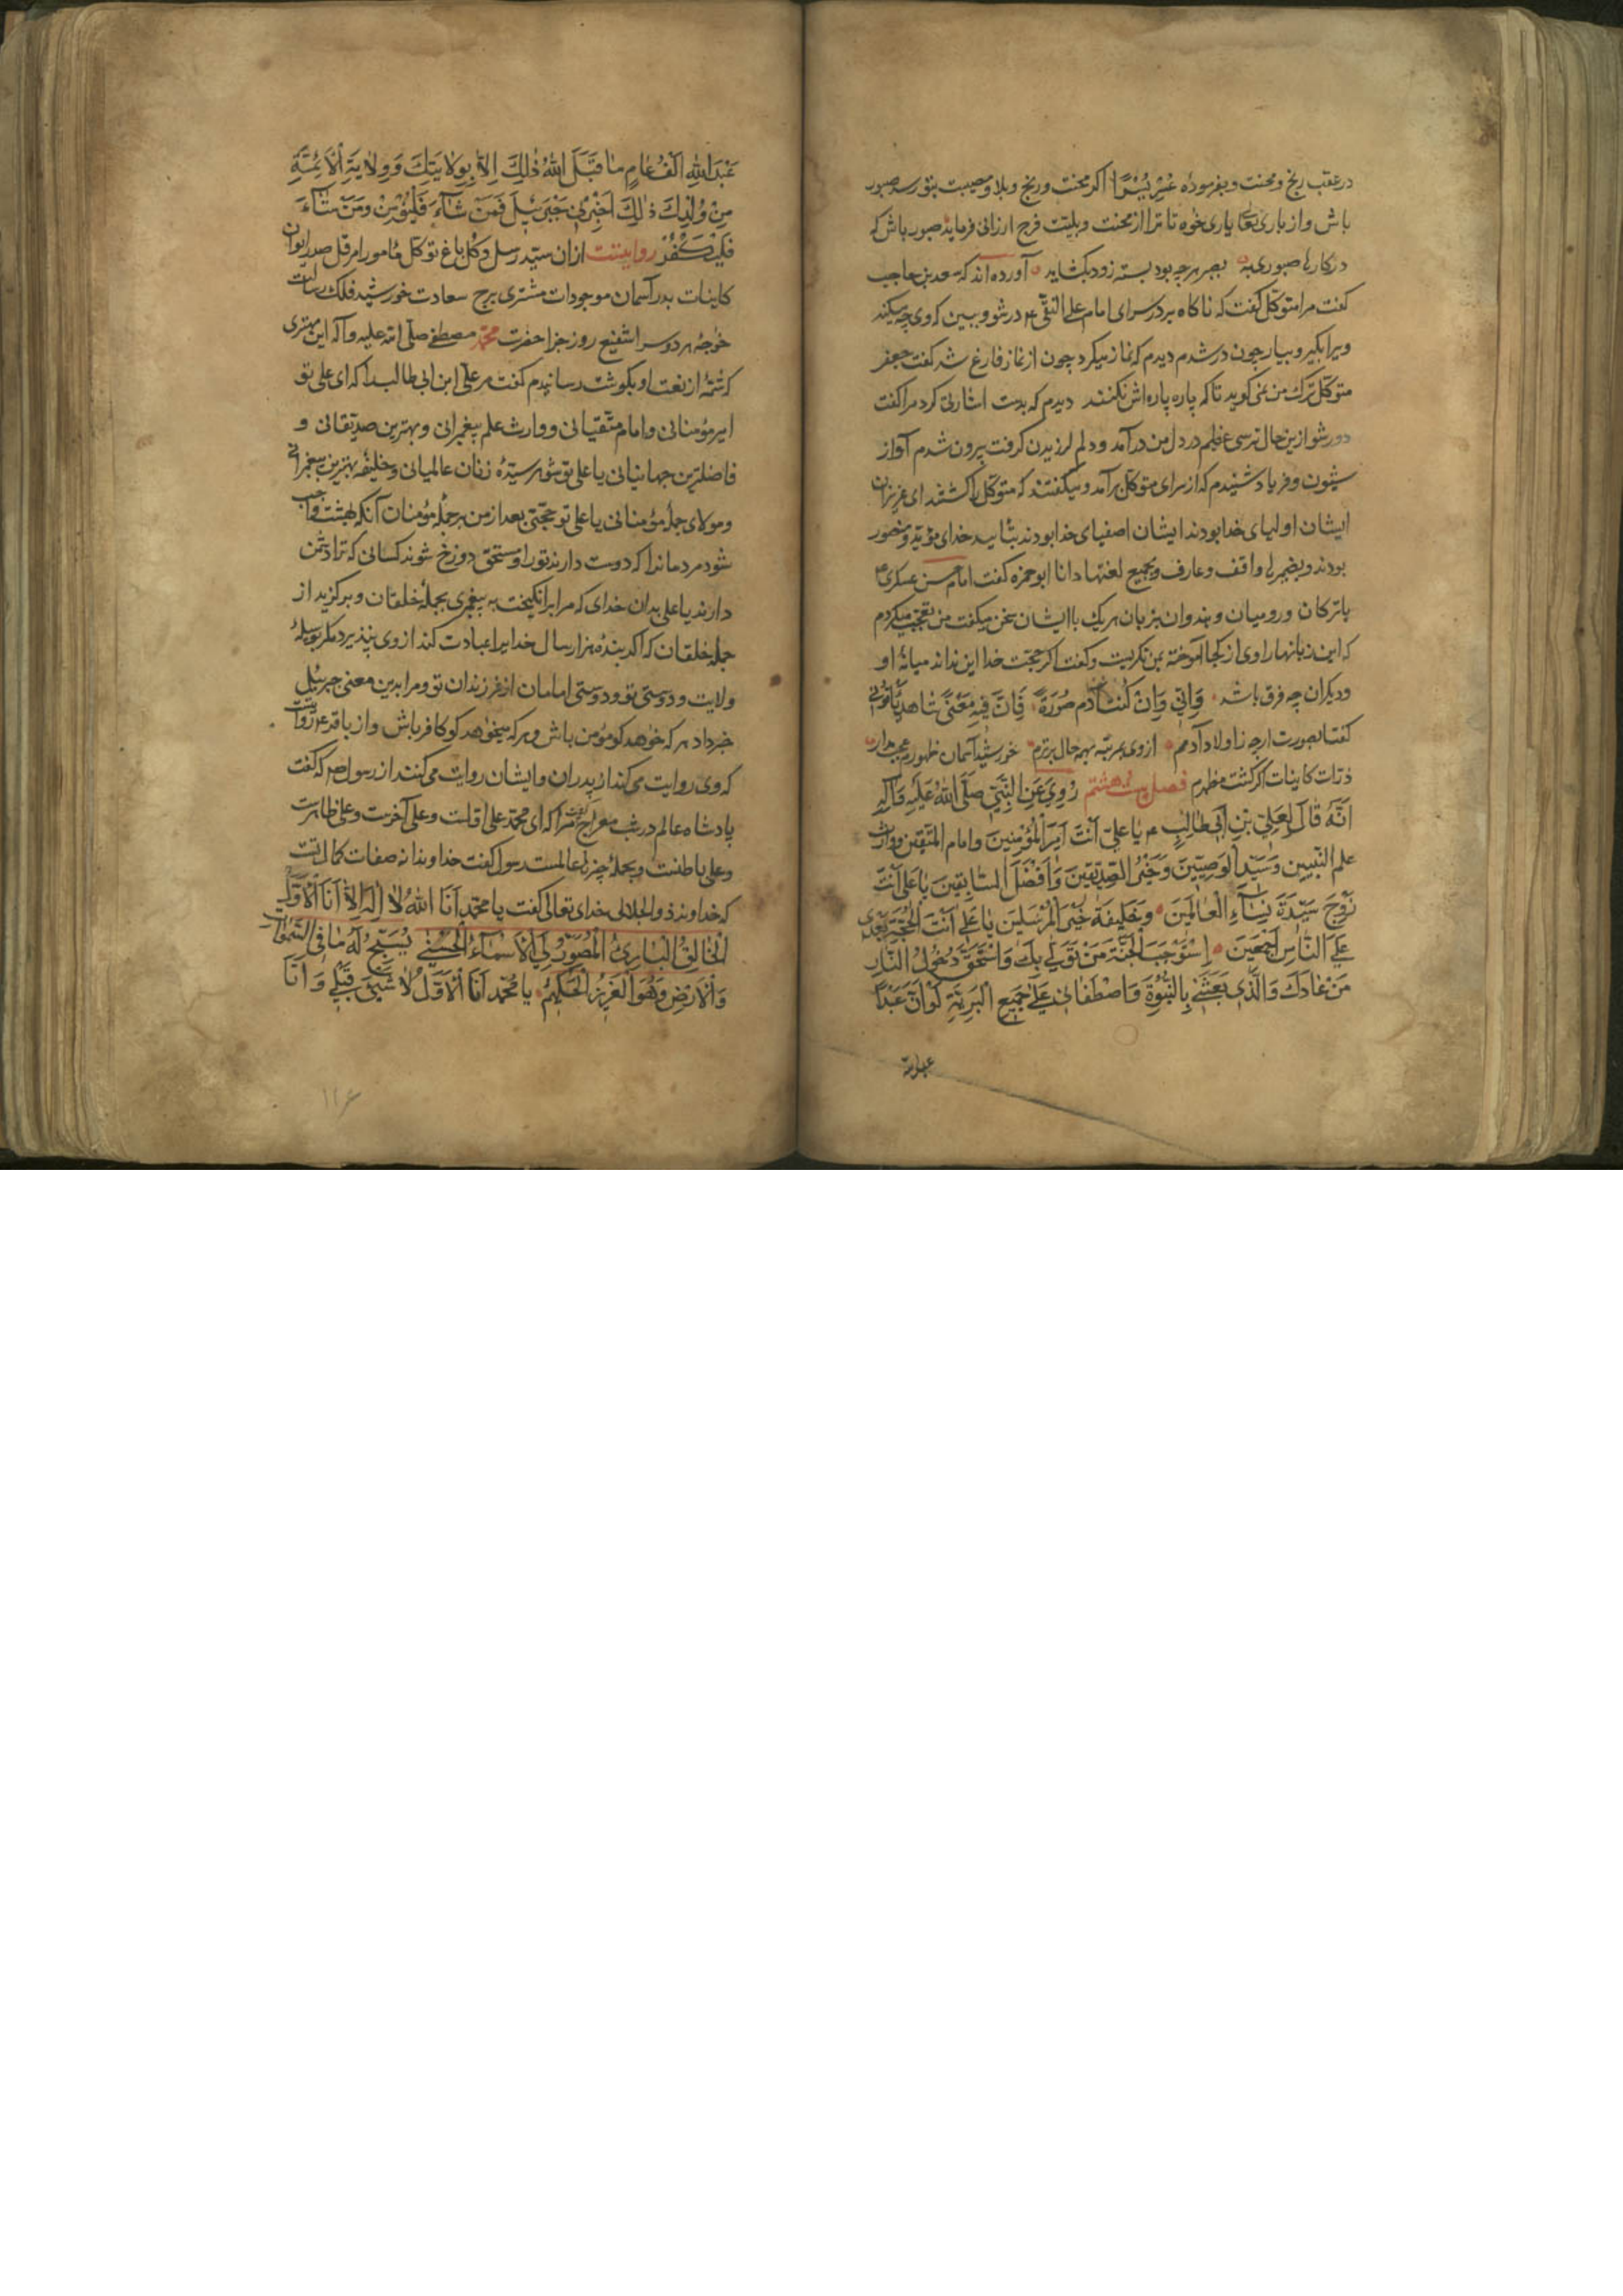 در عقب رنج و محنت و بفرموده عُسْرٍ يُسْرًا اگر محنت و رنج و بلا و مصیبت بتو رسد صبور
باش و از باری تعا یاری خوه تا ترا از محنت و بلیت فرج ارزانی فرماید صبور باش که
در کارها صبوری به بصبر هر چه بود بسته زود بکشاید آورده اند که سعد بن حاجب
کفت مرا متوکّل کفت که ناکاه بر در سرای امام علی النقی ع در شو و ببین که وی چه میکند
ویرا بکیر و بیار چون در شدم دیدم که نماز میکرد چون از نماز فارغ شد کفت جعفر
متوکّل ترک من نمی کوید تا که پاره پاره اش نکنند دیدم که بدست اشارتی کرد مرا کفت
دور شو ازین حال ترسی عظیم در دل من درآمد و دلم لرزیدن کرفت بیرون شدم آواز
شیون و فریاد شنیدم که از سرای متوکّل برآمد و میکفتند که متوکّل را کشتند ای عزیز این
ایشان اولیای خدا بودند ایشان اصفیای خدا بودند بتأیید خدای مؤیّد و منصور
بودند و بضمیرها واقف و عارف و بجمیع لغتها دانا ابو حمزه کفت امام حسن عسکری ع
با ترکان و رومیان و هندوان بزبان هر یک با ایشان سخن میکفت من تعجّب میکردم
که این زبانها را وی از کجا آموخته بمن نکریست و کفت اکر حجّت خدا این نداند میانهٔ او
و دیکران چه فرق باشد وَاِنّي وَاِنْ كُنْتُ ابْنَ آدَمَ صُورَةً فَاِنَّ فِيهِ مَعْنًى شَاهِدٌ بِاُبُوَّتِي
کفتا بصورت ارچه ز اولاد آدمم از وی بمرتبه بهمه حال برترم خورشید آسمان ظهورم عجب مدار
ذرّات کاینات اکر کشت مظهرم فصل بیست هشتم رُوِيَ عَنِ النَّبِيِّ صَلَّى اللهُ عَلَيْهِ وَآلِهِ
اَنَّهُ قَالَ لِعَلِيِّ بْنِ اَبِي طَالِبٍ ع يَا عَلِيُّ اَنْتَ اَمِيرُ الْمُؤْمِنِينَ وَامام المتّقين ووارث
علم النبيين وَسَيِّدُ الْوَصِيِّينَ وَخَيْرُ الصِّدِّيقِينَ وَاَفْضَلُ السَّابِقِينَ يَا عَلِي اَنْتَ
زَوْجُ سَيِّدَةِ نِسَاءِ الْعَالَمِينَ وَخَلِيفَةُ خَيْرِ الْمُرْسَلِينَ يَا عَلِيُّ اَنْتَ الْحُجَّةُ بَعْدِي
عَلَى النَّاسِ اَجْمَعِينَ اِسْتَوْجَبَ الْجَنَّةَ مَنْ تَوَلَّى بِكَ وَاسْتَحَقَّ دُخُولَ النَّارِ
مَنْ عَادَكَ وَالَّذِي بَعَثَنِي بِالنُّبُوَّةِ وَاصْطَفَانِي عَلَى جَمِيعِ الْبَرِيَّةِ لَوْ اَنَّ عَبْدًا
عبدالله
عَبَدَ اللهَ اَلْفَ عَامٍ مَا قَبِلَ اللهُ ذٰلِكَ اِلَّا بِوِلَايَتِكَ وَوِلَايَةِ الْاَئِمَّةِ
مِنْ وُلْدِكَ ذٰلِكَ اَخْبَرَنِي جَبْرَئِيلُ فَمَنْ شَاءَ فَلْيُؤْمِنْ وَمَنْ شَاءَ
فَلْيَكْفُرْ روایتست از ان سیّد رسل و کُل باغ توکّل مأمور امر قل صدر ایوان
کاینات بدر آسمان موجودات مشتری برج سعادت خورشید فلک رسالت
خواجه هر دو سرا شفیع روز جزا حضرت محمّد مصطفی صلی الله علیه وآله این مهتری
که شمّهٔ از نعت او بکوشت رسانیدم کفت مر علی ابن ابی طالب را که ای علی تو
امیر مؤمنانی و امام متّقیانی و وارث علم پیغمبرانی و بهترین صدّیقانی و
فاضلترین جهانیانی یا علی تو شوهر سیّدهٔ زنان عالمیانی و خلیفهٔ بهترین پیغمبرانی
و مولای جملهٔ مؤمنانی یا علی تو حجّتی بعد از من بر جملهٔ مؤمنان آنکه بهشت واجب
شود مردمانرا که دوست دارند تو را و مستحق دوزخ شوند کسانی که ترا دشمن
دارند یا علی بدان خدای که مرا برانکیخت به پیغمبری بجملهٔ خلقان و برکزید از
جمله خلقان که اکر بندهٔ هزار سال خدایرا عبادت کند از وی نپذیرد مکر بوسیلهٔ
ولایت و دوستی تو و دوستی امامان از فرزندان تو و مرا بدین معنی جبرئیل
خبر داد هر که خواهد کو مؤمن باش و هر که میخواهد کو کافر باش و از باقر ع روایتست
که وی روایت می کند از پدران و ایشان روایت می کنند از رسول ص که کفت
پادشاه عالم در شب معراج کفت مرا که ای محمّد علی اوّلست و علی آخرست و علی ظاهرست
و علی باطنست و بجملهٔ چیزها عالمست رسول کفت خداوندا نه صفات کمال تست
که خداوند ذو الجلالی خدای تعالی کفت یا محمّد اَنَا اللهُ لَا اِلٰهَ اِلَّا اَنَا الْاَوَّلُ
الْخَالِقُ الْبَارِئُ الْمُصَوِّرُ لِيَ الْاَسْمَاءُ الْحُسْنٰى يُسَبِّحُ لَهُ مَا فِي السَّمٰوَات
وَالْاَرْضِ وَهُوَ الْعَزِيزُ الْحَكِيمُ يا مُحَمّد اَنَا الْاَوَّلُ لَا شَيْئَ قَبْلِي وَاَنَا
۱۱۶